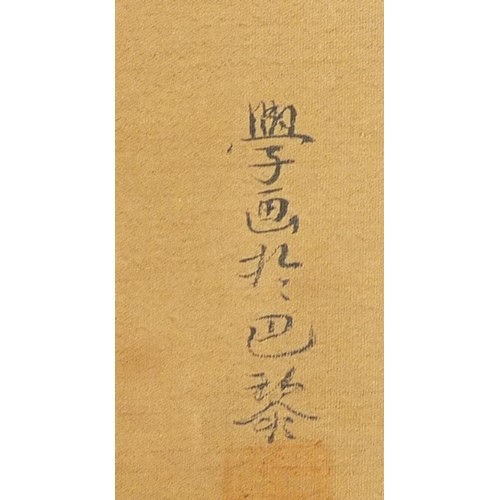 學画於巴黎